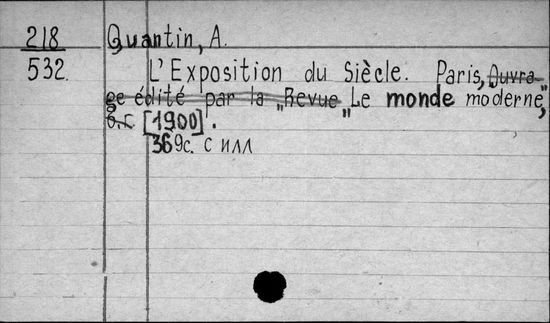 218 Quantin, A.
532. L'Exposition du Siècle. Paris, Ouvra-
ge édité par la „Revue Le monde moderne",
б.г. [1900].
369с. с илл